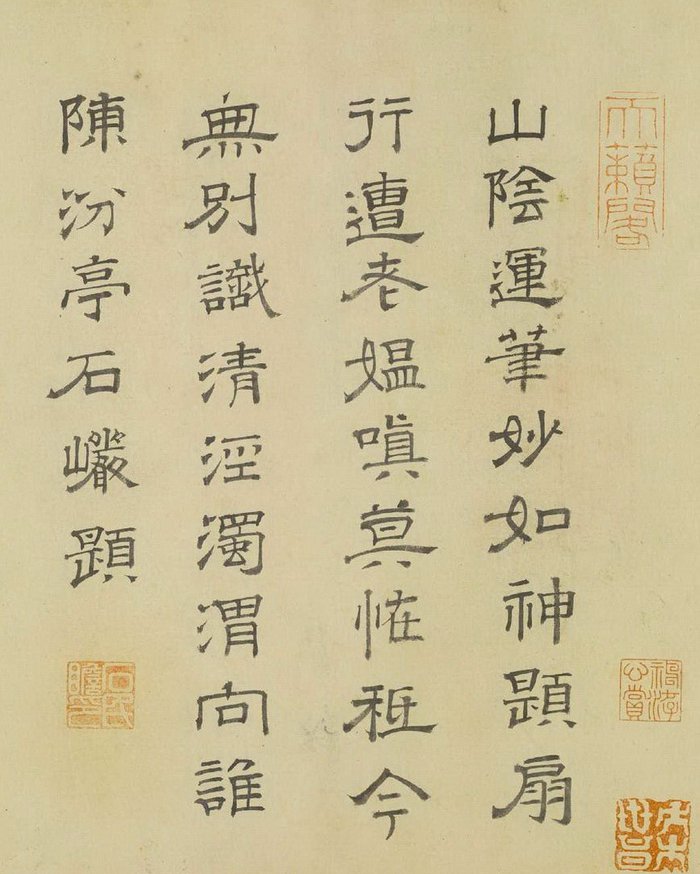 天籟閣
山陰運筆妙如神題扇
行遭老媼嗔莫恠秪今
無別識清涇濁渭向誰
陳汾亭石巗題